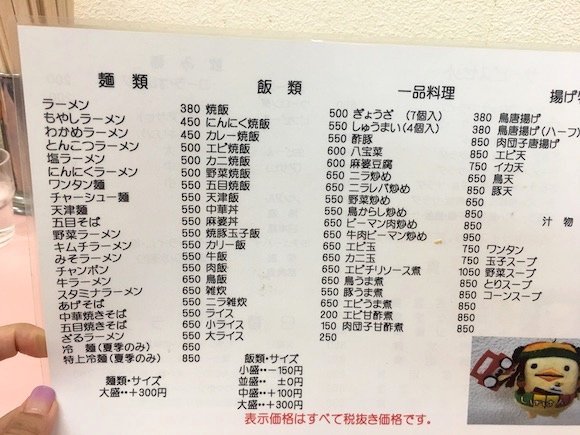 麺類
ラーメン 380
もやしラーメン 450
わかめラーメン 450
とんこつラーメン 500
塩ラーメン 500
にんにくラーメン 500
ワンタン麺 550
チャーシュー麺 550
天津麺 550
五目そば 550
野菜ラーメン 550
キムチラーメン 550
みそラーメン 550
チャンポン 550
牛ラーメン 650
スタミナラーメン 650
あげそば 550
中華焼きそば 550
五目焼きそば 550
ざるラーメン 550
冷 麺(夏季のみ) 650
特上冷麺(夏季のみ) 850
麺類・サイズ
大盛‥+300円
飯類
焼飯 500
にんにく焼飯 550
カレー焼飯 550
エビ焼飯 600
カニ焼飯 600
野菜焼飯 650
五目焼飯 650
天津飯 650
中華丼 650
麻婆丼 650
焼豚玉子飯 650
カリー飯 650
牛飯 650
肉飯 650
鳥飯 650
雑炊 550
ニラ雑炊 650
ライス 200
小ライス 150
大ライス 250
飯類・サイズ
小盛‥-150円
並盛‥ ±0円
中盛‥+100円
大盛‥+300円
一品料理
ぎょうざ(7個入) 380
しゅうまい(4個入) 380
酢豚 850
八宝菜 850
麻婆豆腐 750
ニラ炒め 650
ニラレバ炒め 750
野菜炒め 650
鳥からし炒め 850
ピーマン肉炒め 850
牛肉ピーマン炒め 950
エビ玉 750
カニ玉 750
エビチリソース煮 1050
鳥うま煮 850
豚うま煮 850
エビうま煮 850
エビ甘酢煮 850
肉団子甘酢煮 850
揚げ
鳥唐揚げ
鳥唐揚げ(ハーフ)
肉団子唐揚げ
エビ天
イカ天
鳥天
豚天
汁物
ワンタン
玉子スープ
野菜スープ
とりスープ
コーンスープ
表示価格はすべて税抜き価格です。